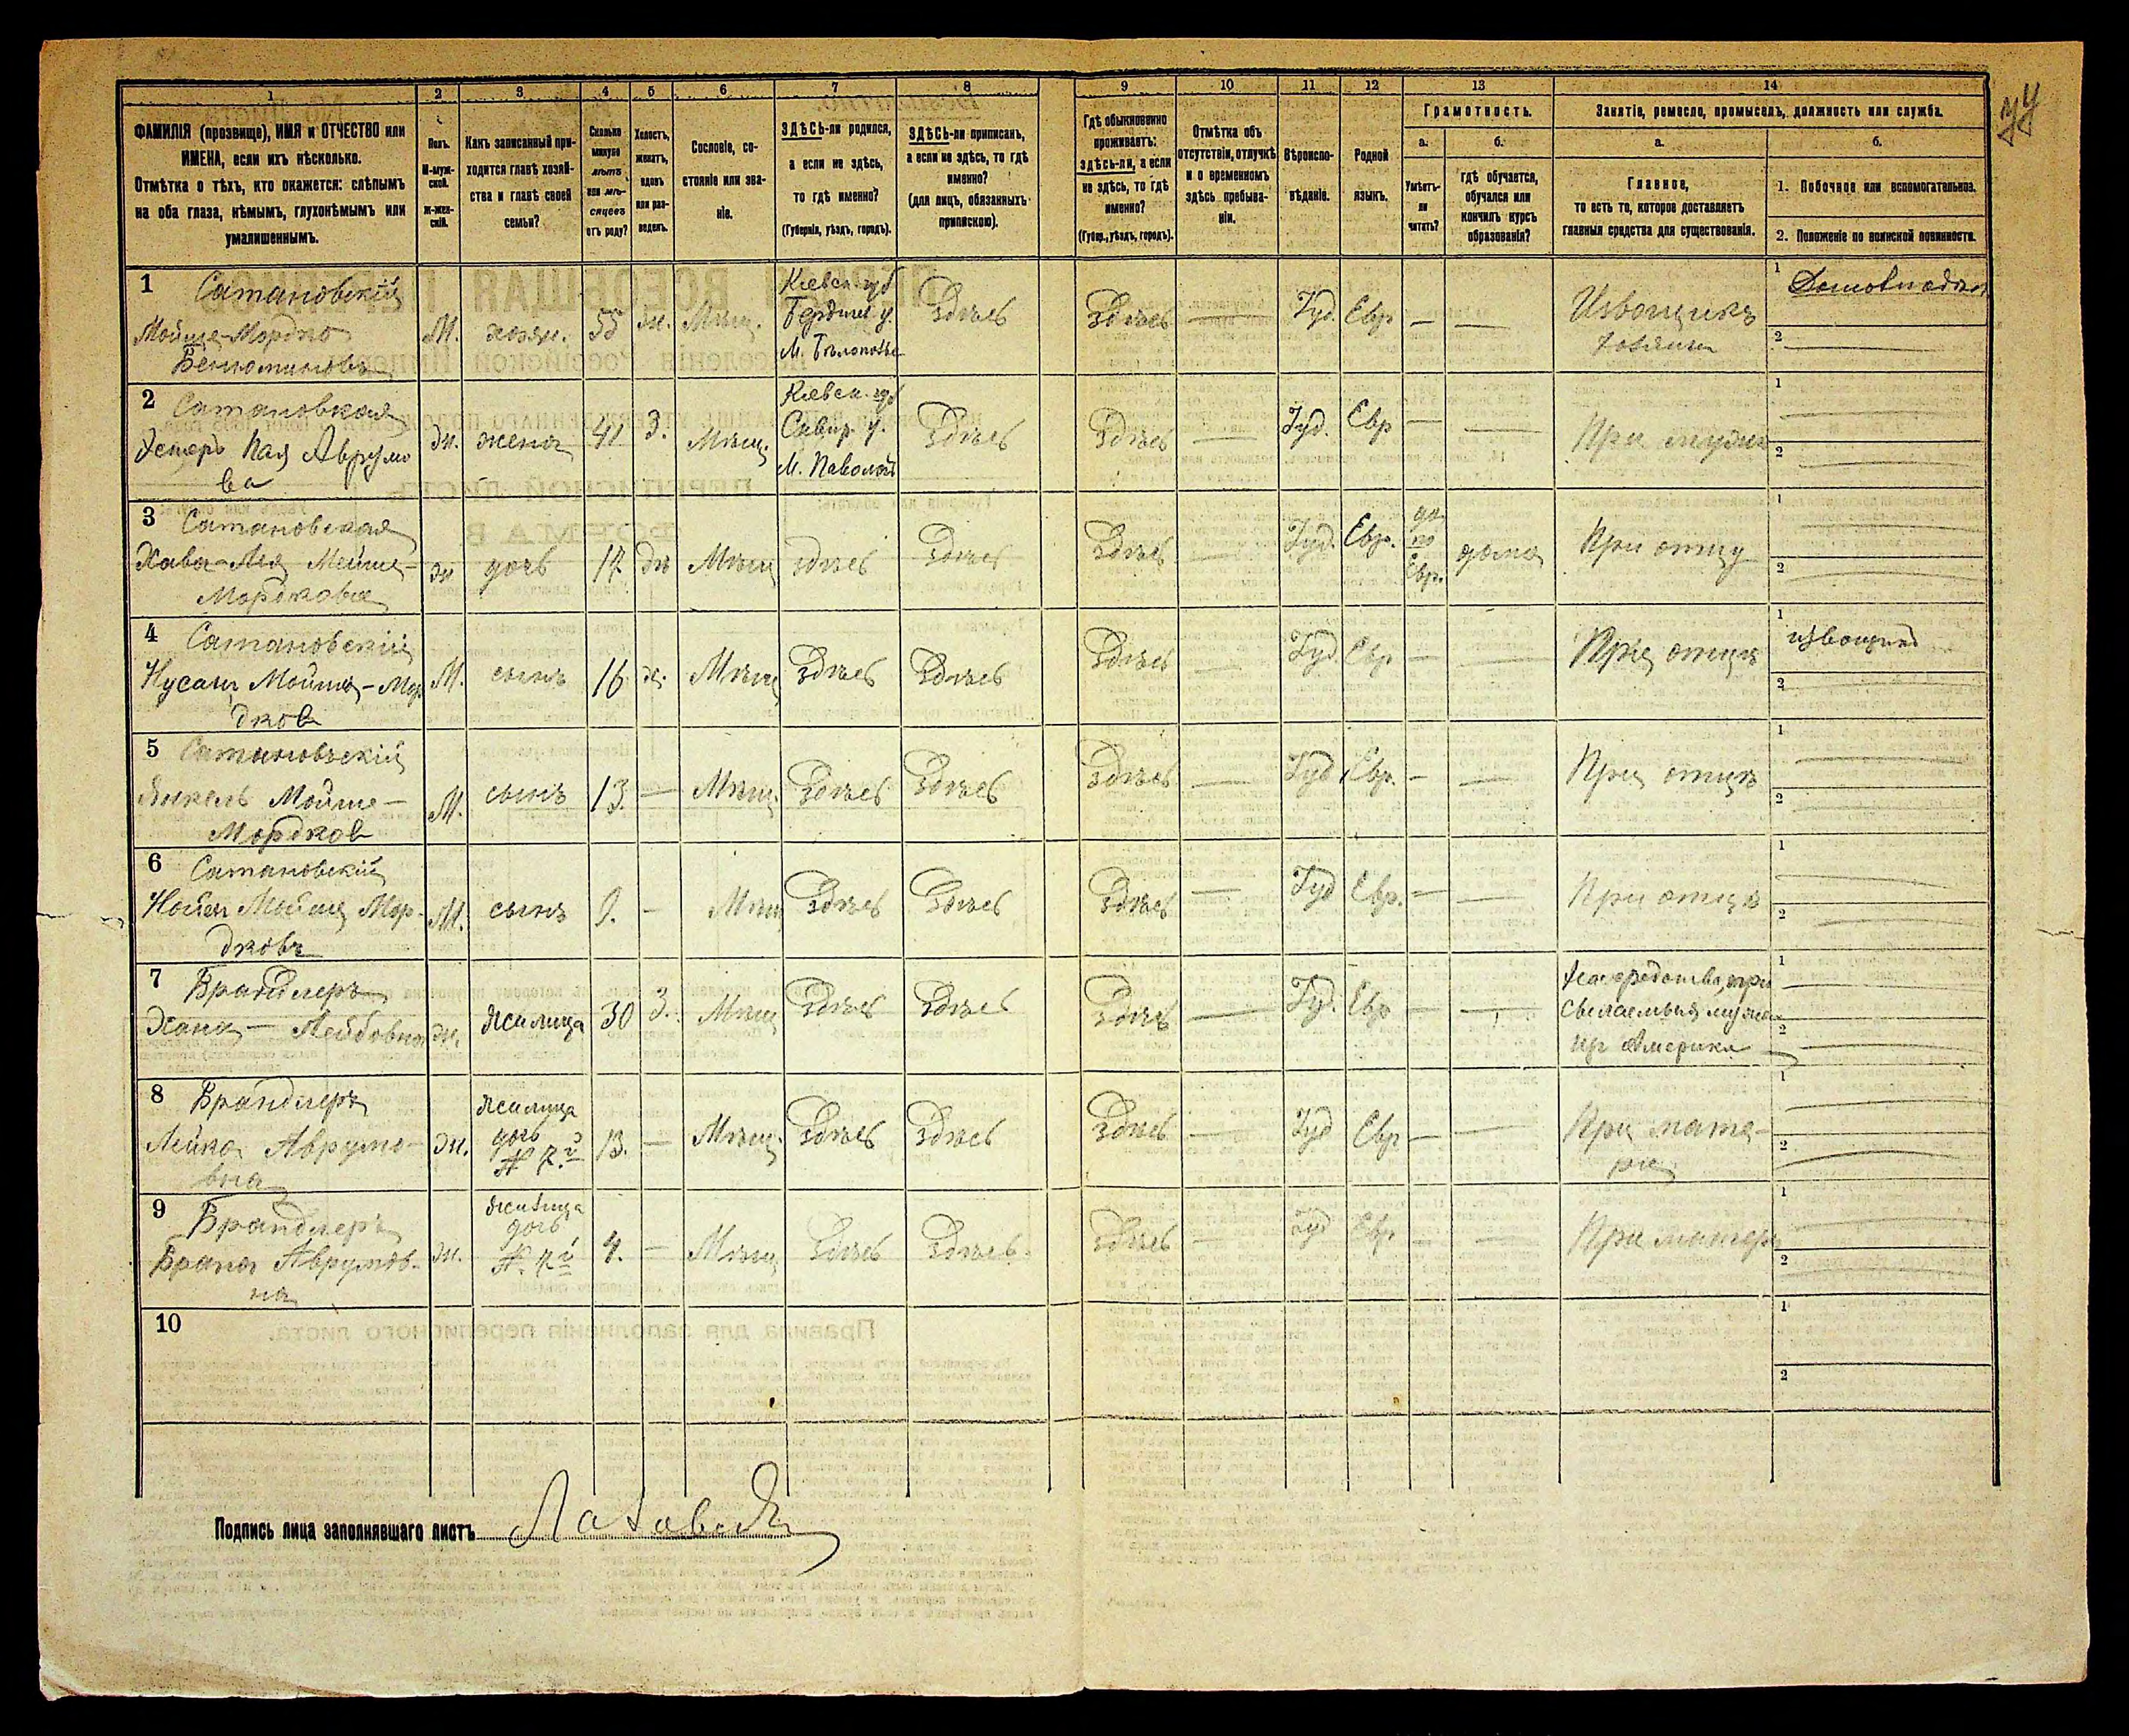 1 2 3 4 5 6 7 8 9 10 11 12 13 14
ФАМИЛІЯ (прозвище), ИМЯ и ОТЧЕСТВО или
ИМЕНА, если ихъ нѣсколько.
Отмѣтка о тѣхъ, кто окажется: слѣпымъ
на оба глаза, нѣмымъ, глухонѣмымъ или
умалишеннымъ.
Полъ.
М-муж-
ской.
ж-жен-
скій.
Какъ записанный при-
ходится главѣ хозяй-
ства и главѣ своей
семьи?
Сколько
минуло
лѣтъ
или мѣ-
сяцевъ
отъ роду?
Холостъ,
женатъ,
вдовъ
или раз-
веденъ.
Сословіе, со-
стояніе или зва-
ніе.
ЗДѢСЬ-ли родился,
а если не здѣсь,
то гдѣ именно?
(Губернія, уѣздъ, городъ).
ЗДѢСЬ-ли приписанъ,
а если не здѣсь, то гдѣ
именно?
(для лицъ, обязанныхъ
припискою).
Гдѣ обыкновенно
проживаетъ:
здѣсь-ли, а если
не здѣсь, то гдѣ
именно?
(Губер., уѣздъ, городъ).
Отмѣтка объ
отсутствіи, отлучкѣ
и о временномъ
здѣсь пребыва-
ніи.
Вѣроиспо-
вѣданіе.
Родной
языкъ.
Грамотность.
а. б.
Умѣетъ-
ли
читать?
гдѣ обучается,
обучался или
кончилъ курсъ
образованія?
Занятіе, ремесло, промыселъ, должность или служба.
а. б.
Главное,
то есть то, которое доставляетъ
главныя средства для существованія.
1. Побочное или вспомогательное.
2. Положеніе по воинской повинности.
1 Сатановскій
Мойше-Мордко
Беньоминовъ
М. хозяи. 55 ж. Мѣщ.
Кіевск. губ
Бердичев у.
М. Бѣлополье
Здѣсь Здѣсь — Іуд. Евр — —
Извощикъ
хозяин
1 Домовладѣл
2 —
2 Сатановская
Эстеръ Хая Аврумо
ва
ж. жена 41 З. Мѣщ.
Кіевск. губ
Сквир. у.
М. Паволоч
Здѣсь Здѣсь — Іуд. Евр — — При мужѣ
1
2
3 Сатановская
Хава-Лея Мойше-
Мордкова
ж дочь 17 дѣ Мѣщ здѣсь Здѣсь Здѣсь — Іуд. Евр.
да
по
Евр.
дома При отцу
1
2
4 Сатановскій
Нусанъ Мойше-Мор
дков
М. сынъ 16 х. Мѣщ Здѣсь Здѣсь Здѣсь — Іуд Евр — — При отцѣ
1 извощик
2
5 Сатановскій
Янкель Мойше-
Мордков
М. сынъ 13. — Мѣщ. Здѣсь Здѣсь Здѣсь — Іуд Евр. — — При отцѣ
1
2
6 Сатановскій
Мойше Мор-
дковъ
М. сынъ 9. — Мѣщ Здѣсь Здѣсь Здѣсь — Іуд Евр. — — При отцѣ
1
2
7 Брандлеръ
Хана — Лейбовна
ж. жилица 30 З. Мѣщ Здѣсь Здѣсь Здѣсь — Іуд. Евр — —
На средства, при
сылаемыя мужем
из Америки
1
2
8 Брандлеръ
Лейка Аврумо-
вна
ж.
жилица
дочь
№ 7й
13. — Мѣщ. Здѣсь Здѣсь Здѣсь — Іуд Евр — —
При мате-
ри
1
2
9 Брандлеръ
Брана Аврумов-
на
ж.
жилица
дочь
№ 7й
4. — Мѣщ Здѣсь Здѣсь. Здѣсь — Іуд Евр. — — При матери
1
2
10
1
2
Подпись лица заполнявшаго листъ